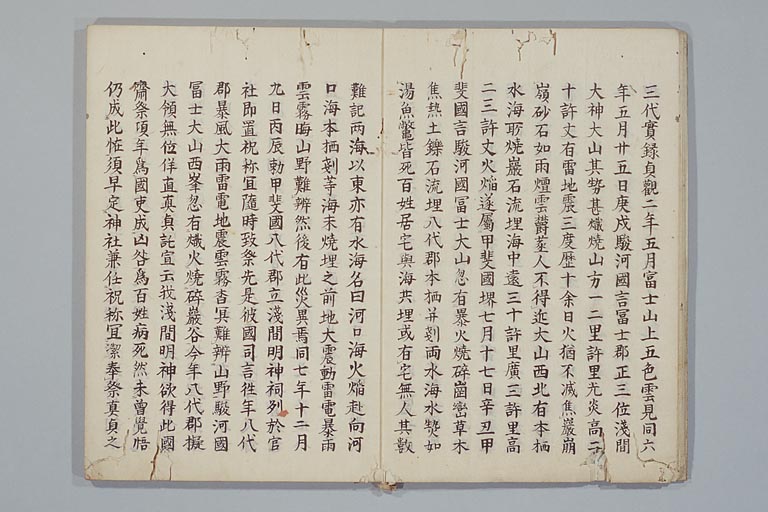 三代實録貞觀二年五月富士山上五色雲見同六
年五月廿五日庚戌駿河國言冨士郡正三位淺間
大神大山其勢甚熾燒山方一二里許里光炎高二
十許丈有雷地震三度歴十余日火猶不滅焦巖崩
嶺砂石如雨煙雲欝蒸人不得近大山西北有本栖
水海所燒巖石流埋海中遠三十許里廣三許里高
二三許丈火焔遂属甲斐國堺七月十七日辛丑甲
斐國言駿河國冨士大山忽有暴火燒碎崗巒草木
焦熱土鑠石流埋八代郡本栖并剗両水海水𤍠如
湯魚鼈皆死百姓居宅與海共埋或有宅無人其數
難記両海以東亦有水海名曰河口海火焔赴向河
口海本栖剗等海未燒埋之前地大震動雷電暴雨
雲霧晦山野難辨然後有此災異焉同七年十二月
九日丙辰勅甲斐國八代郡立淺間明神祠列於官
社即置祝祢冝隨時致祭先是彼國司言徃年八代
郡暴風大雨雷電地震雲霧杳冥難辨山野駿河國
冨士大山西峯忽有熾火燒碎巖谷今年八代郡擬
大領無位伴直真貞託宣云我淺間明神欲得此國
齋祭頃年爲國吏成凶咎爲百姓病死然未曾覺悟
仍成此恠須早定神社兼任祝祢冝潔奉祭真貞之